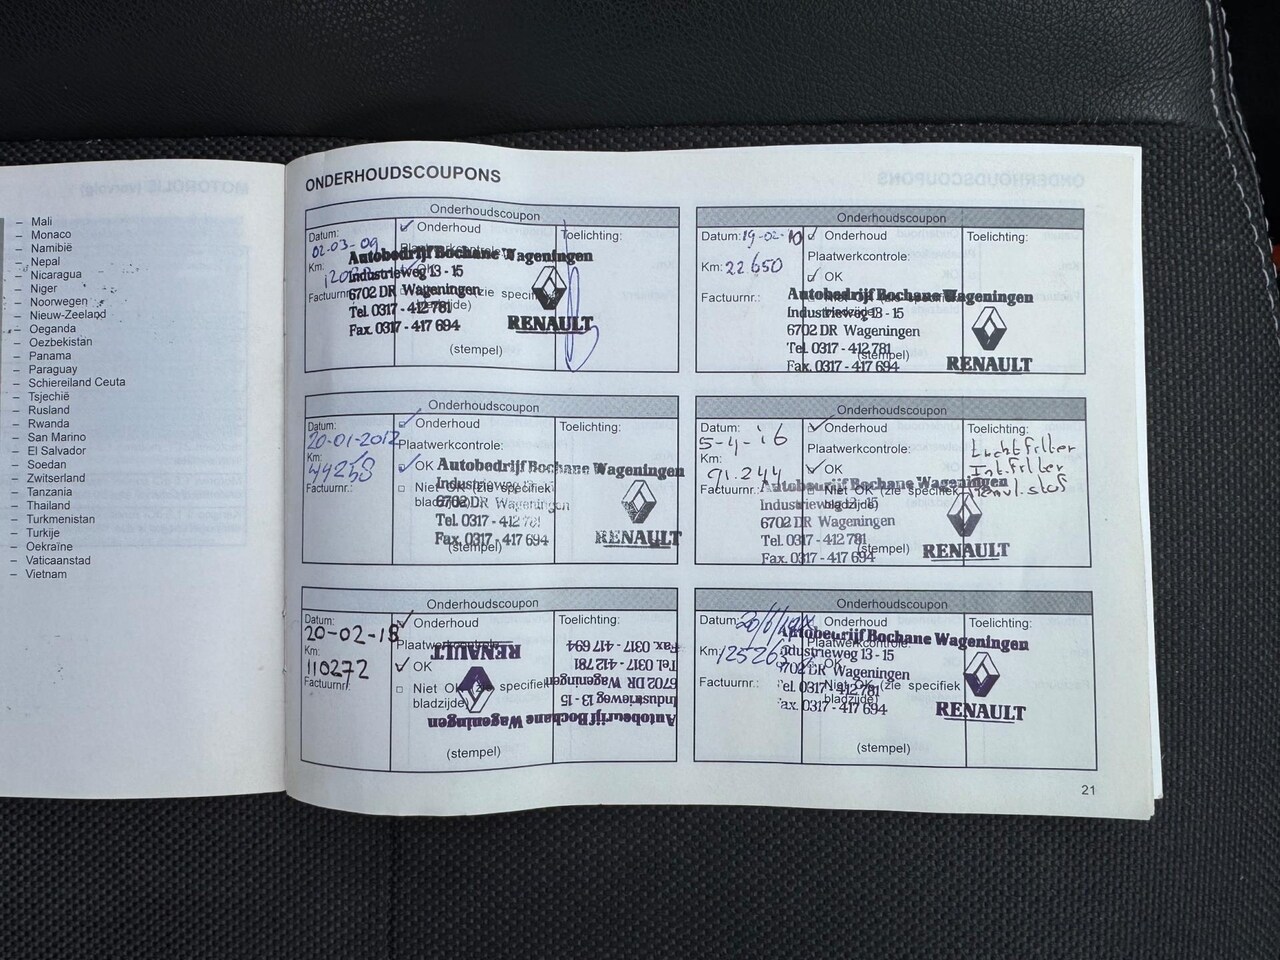 – Mali
– Monaco
– Namibië
– Nepal
– Nicaragua
– Niger
– Noorwegen
– Nieuw-Zeeland
– Oeganda
– Oezbekistan
– Panama
– Paraguay
– Schiereiland Ceuta
– Tsjechië
– Rusland
– Rwanda
– San Marino
– El Salvador
– Soedan
– Zwitserland
– Tanzania
– Thailand
– Turkmenistan
– Turkije
– Oekraïne
– Vaticaanstad
– Vietnam
ONDERHOUDSCOUPONS
Onderhoudscoupon
Datum:
02-03-09
Km:
Factuurnr.:
Onderhoud
Plaatwerkcontrole:
OK
Toelichting:
Autobedrijf Bochane Wageningen
Industrieweg 13 - 15
6702 DR Wageningen
Tel. 0317 - 412 781
Fax. 0317 - 417 694
RENAULT
(stempel)
Onderhoudscoupon
Datum: 19-02-10
Km: 22650
Factuurnr.:
Onderhoud
Plaatwerkcontrole:
OK
Toelichting:
Autobedrijf Bochane Wageningen
Industrieweg 13 - 15
6702 DR Wageningen
Tel. 0317 - 412 781
Fax. 0317 - 417 694
RENAULT
(stempel)
Onderhoudscoupon
Datum:
20-01-2012
Km:
44258
Factuurnr.:
Onderhoud
Plaatwerkcontrole:
OK
Niet OK (zie specifiek
bladzijde)
Toelichting:
Autobedrijf Bochane Wageningen
Industrieweg
6702 DR Wageningen
Tel. 0317 - 412 781
Fax. 0317 - 417 694
RENAULT
(stempel)
Onderhoudscoupon
Datum:
5-4-16
Km:
91.244
Factuurnr.:
Onderhoud
Plaatwerkcontrole:
OK
Niet OK (zie specifiek
bladzijde)
Toelichting:
Luchtfilter
Int.filter
Autobedrijf Bochane Wageningen
Industrieweg 13 - 15
6702 DR Wageningen
Tel. 0317 - 412 781
Fax. 0317 - 417 694
RENAULT
(stempel)
Onderhoudscoupon
Datum:
20-02-18
Km:
110272
Factuurnr.:
Onderhoud
Plaatwerkcontrole:
OK
Niet OK (zie specifiek
bladzijde)
Toelichting:
Autobedrijf Bochane Wageningen
Industrieweg 13 - 15
6702 DR Wageningen
Tel. 0317 - 412 781
Fax. 0317 - 417 694
RENAULT
(stempel)
Onderhoudscoupon
Datum:
Km:
Factuurnr.:
Onderhoud
OK
Niet OK (zie specifiek
bladzijde)
Toelichting:
Autobedrijf Bochane Wageningen
Industrieweg 13 - 15
6702 DR Wageningen
Tel. 0317 - 412 781
Fax. 0317 - 417 694
RENAULT
(stempel)
21